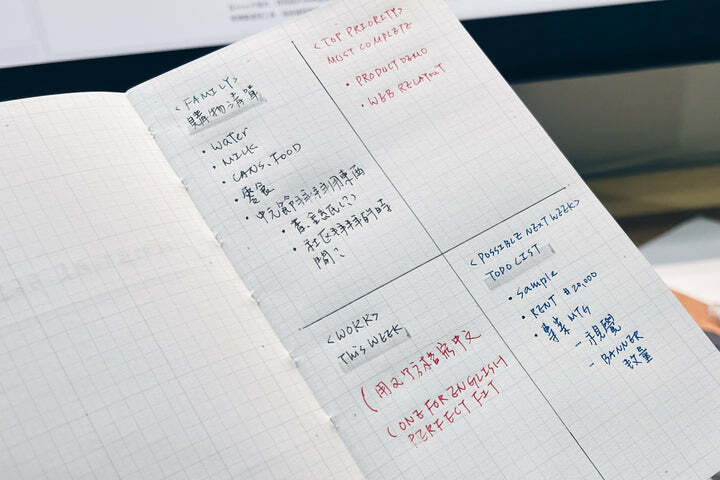 <FAMILY>
購物清單
• water
• MILK
• CANS、FOOD
• 零食
• 中元節拜拜用東西
• 社区拜拜的時
間?
<TOP PRIORITY>
MUST COMPLETE
• PRODUCT DEMO
• WEB RELAYOUT
<WORK>
This WEEK
(用2個方格寫中文
(ONE FOR ENGLISH
PERFECT FIT
<POSSIBLE NEXT WEEK>
TODO LIST
• sample
• RENT $20,000
• 專業 MTG
- 視覺
- BANNER
數量